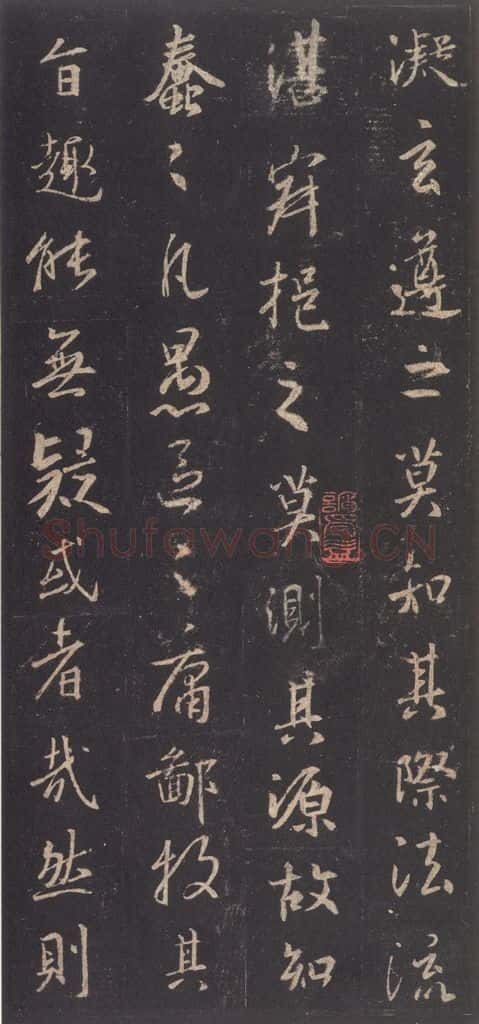 凝玄遵之莫知其際法流
湛寂挹之莫測其源故知
蠢〻凡愚區〻庸鄙投其
旨趣能無疑或者哉然則
Shufawang.CN